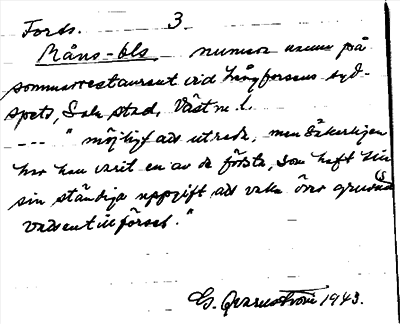 Forts. 3
Måns-Ols numera namn på
sommarrestaurant vid Långforsens syd-
spets, Sala stad, Västm. l.
--- " möjligt att utreda, men säkerligen
har han varit en av de första, som haft till
sin ständiga uppgift att vaka över gruvans
vattentillförsel."
G. Qvarnström 1943.